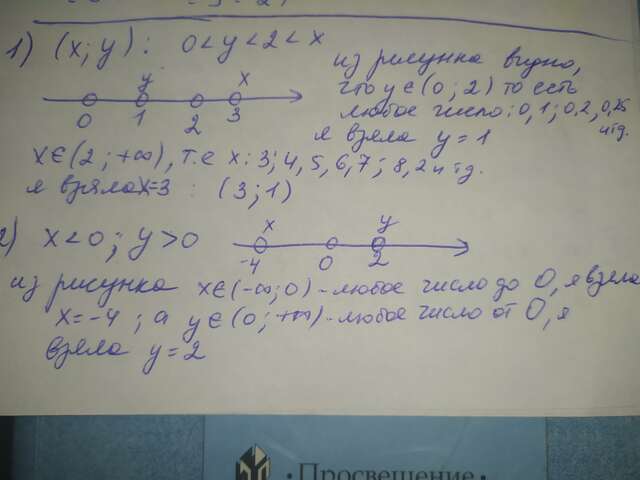 1) (x; y): 0 < y < 2 < x
из рисунка видно,
что y ∈ (0; 2) то есть
любое число: 0,1; 0,2, 0,25
и тд.
я взяла y = 1
y x
0 1 2 3
x ∈ (2; +∞), т.е x: 3; 4, 5, 6, 7; 8,2 и тд.
я взяла x=3 : (3; 1)
2) x < 0; y > 0
x y
-4 0 2
из рисунка x ∈ (-∞; 0) - любое число до 0, я взяла
x = -4; а y ∈ (0; +∞) - любое число от 0, я
взяла y = 2
• Просвещение •